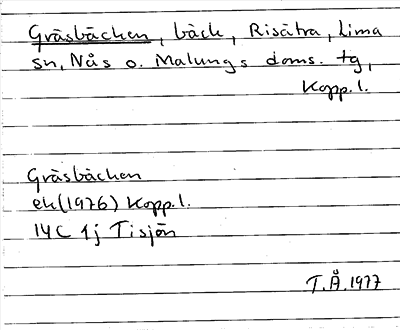 Gräsbäcken, bäck, Risätra, Lima
sn, Nås o. Malungs doms. tg,
Kopp. l.
Gräsbäcken
ek (1976) Kopp. l.
14C 1j Tisjön
T.Å. 1977